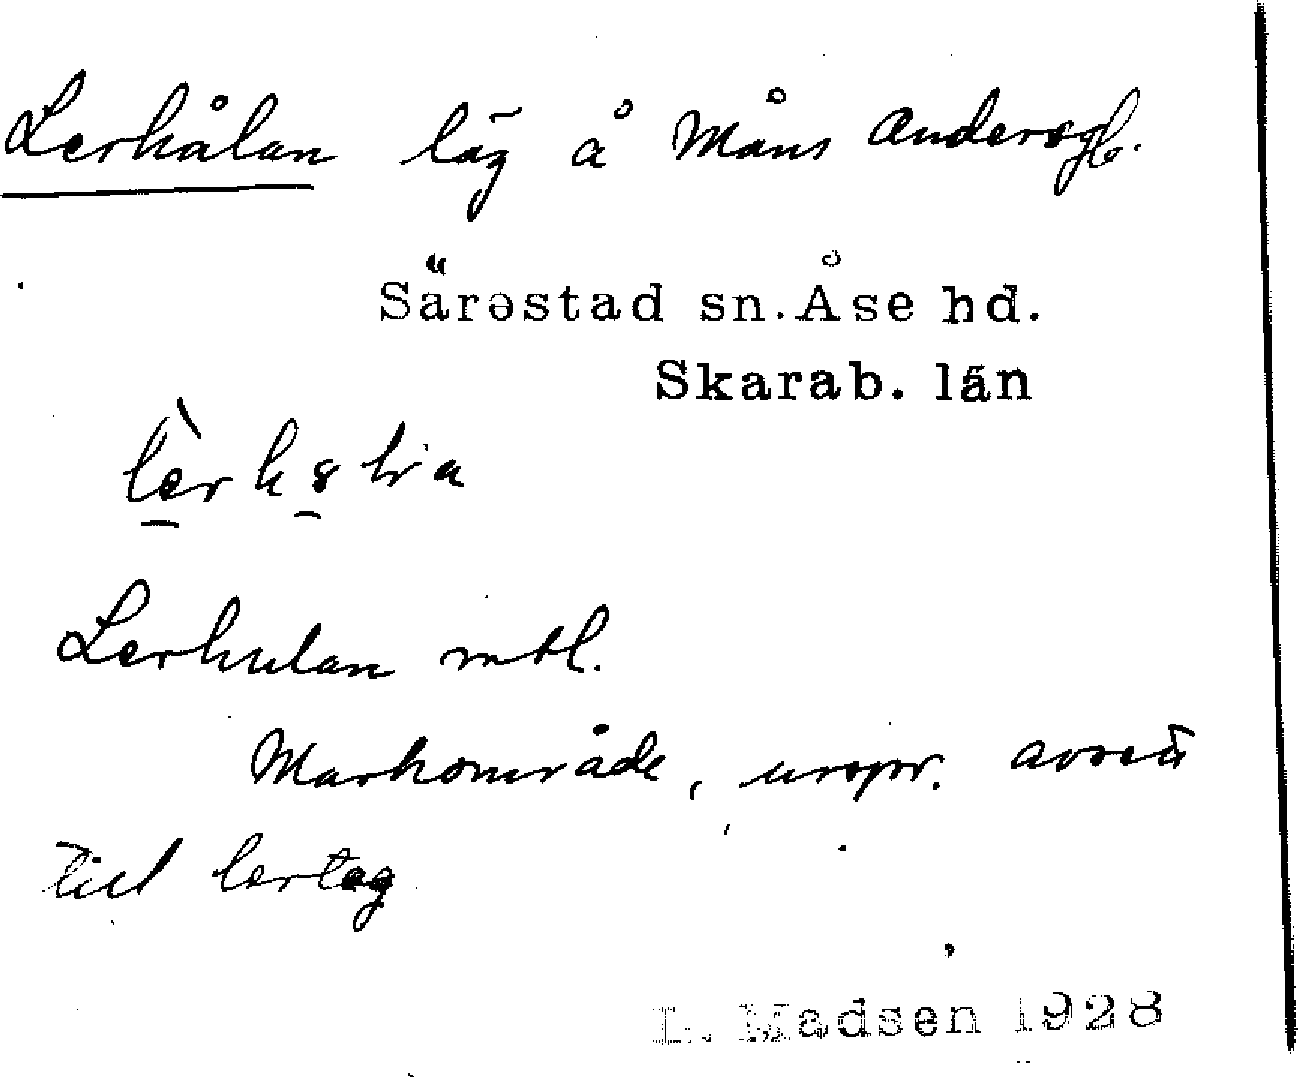 Lerhålan låg å Måns Andersgb.
Särestad sn. Åse hd.
Skarab. län
Lerhulan mtl.
Markområde, urspr. avsett
till lertag
L. Madsen 1928